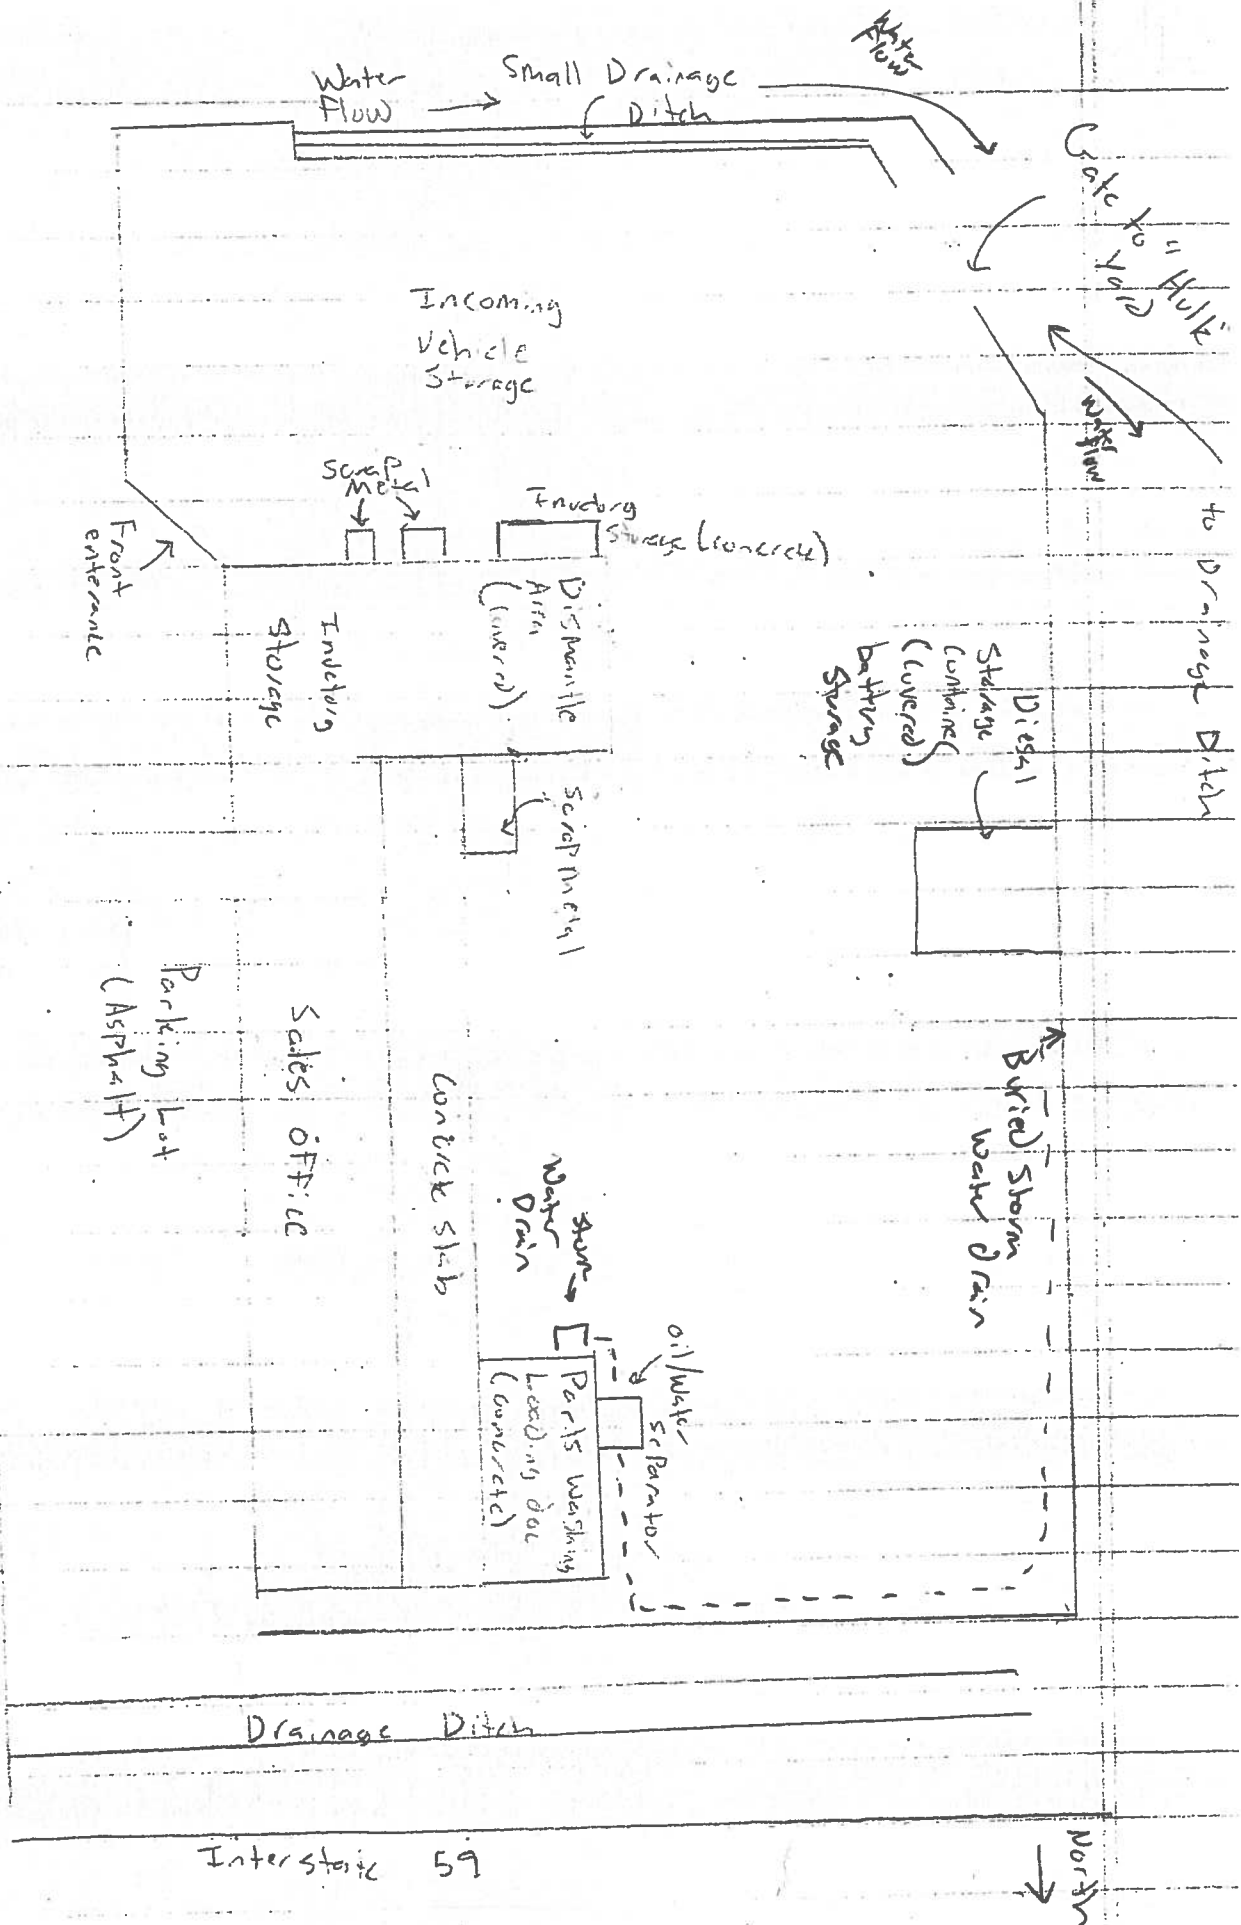 Water
Flow
Small Drainage
Ditch
Water
Flow
Gate to "Hulk"
Yard
Water
flow
to Drainage Ditch
Incoming
Vehicle
Storage
Scrap
Metal
Invetory
Storage (concrete)
Front
enterance
Invetory
Storage
Dismantle
Area
(covered)
Scrap metal
Diesal
Storage
(covered)
battery
Storage
Parking Lot
(Asphalt)
Sales office
Concrete slab
Storm
Water
Drain
oil/water
seperator
Parts washing
Loading doc
(concrete)
Buried Storm
Water drain
Drainage Ditch
Interstate 59
North